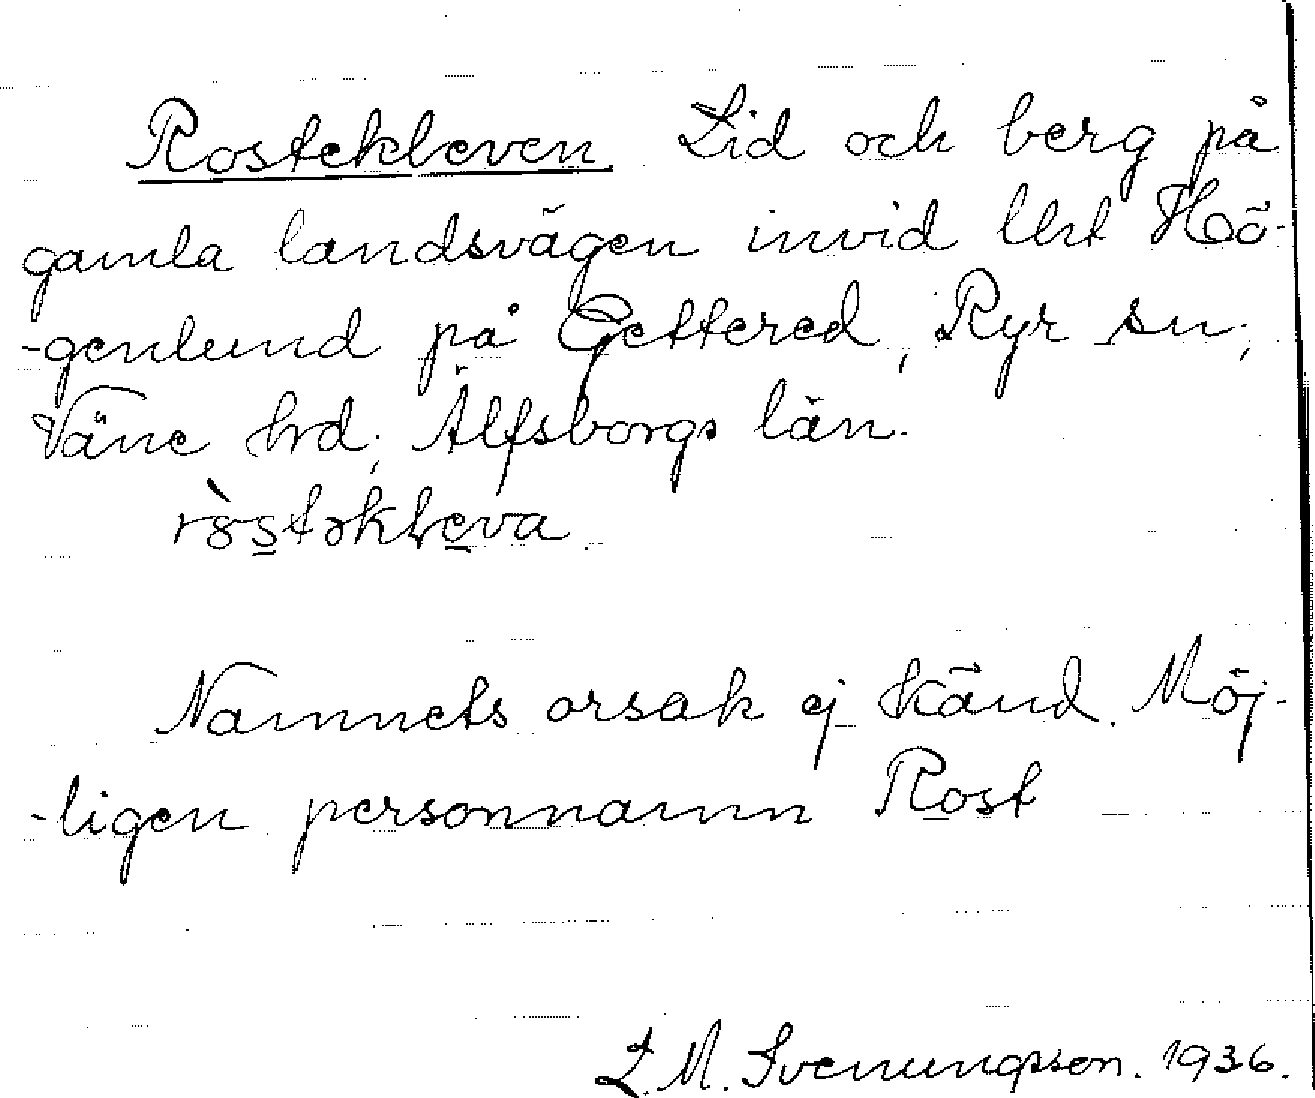 Rostekleven. Lid och berg på
gamla landsvägen invid lht Hö-
-genlund på Gettered, Ryr sn;
Väne hrd; Älfsborgs län.
Namnets orsak ej känd. Möj-
-ligen personnamn Rost
L. M. Svenungsson. 1936.